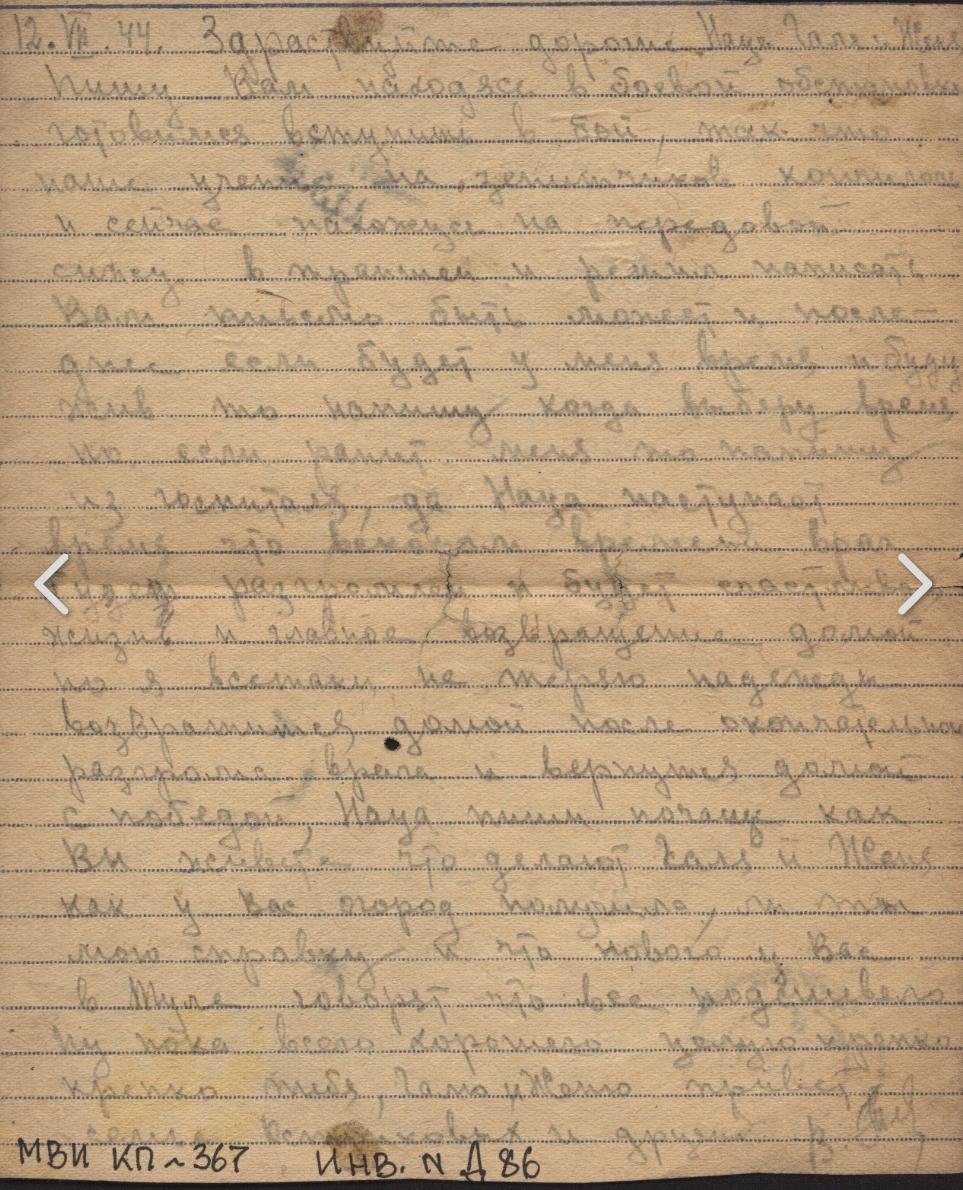 12.VII.44. Здраствуйте дорогие Нация Галя и Женя
Пишу Вам находясь в боевой обстановке
готовимся вступить в бой, так что
наше учение на зенитчиков кончилось
и сейчас нахожусь на передовой
сижу в траншеи и решил написать
Вам письмо быть может и после-
днее если будет у меня время и буду
жив то напишу когда выберу время
но если ранит меня то напишу
из госпиталя, да наступает
время что враг
будет разгромлен и будет счастливая
жизнь и главное возвращение домой
но я всетаки не теряю надежды
возвратится домой после окончательного
разгрома врага и вернутся домой
с победой, пиши почему как
Вы живете что делают Галя и Женя
как у Вас огород получила ли ты
мою справку и что нового у Вас
в Туле говорят что все подешевело
ну пока всего хорошего целую крепко
крепко тебя, Галю и Женю привет
и друзей
МВИ КП~367 ИНВ. N Д 86